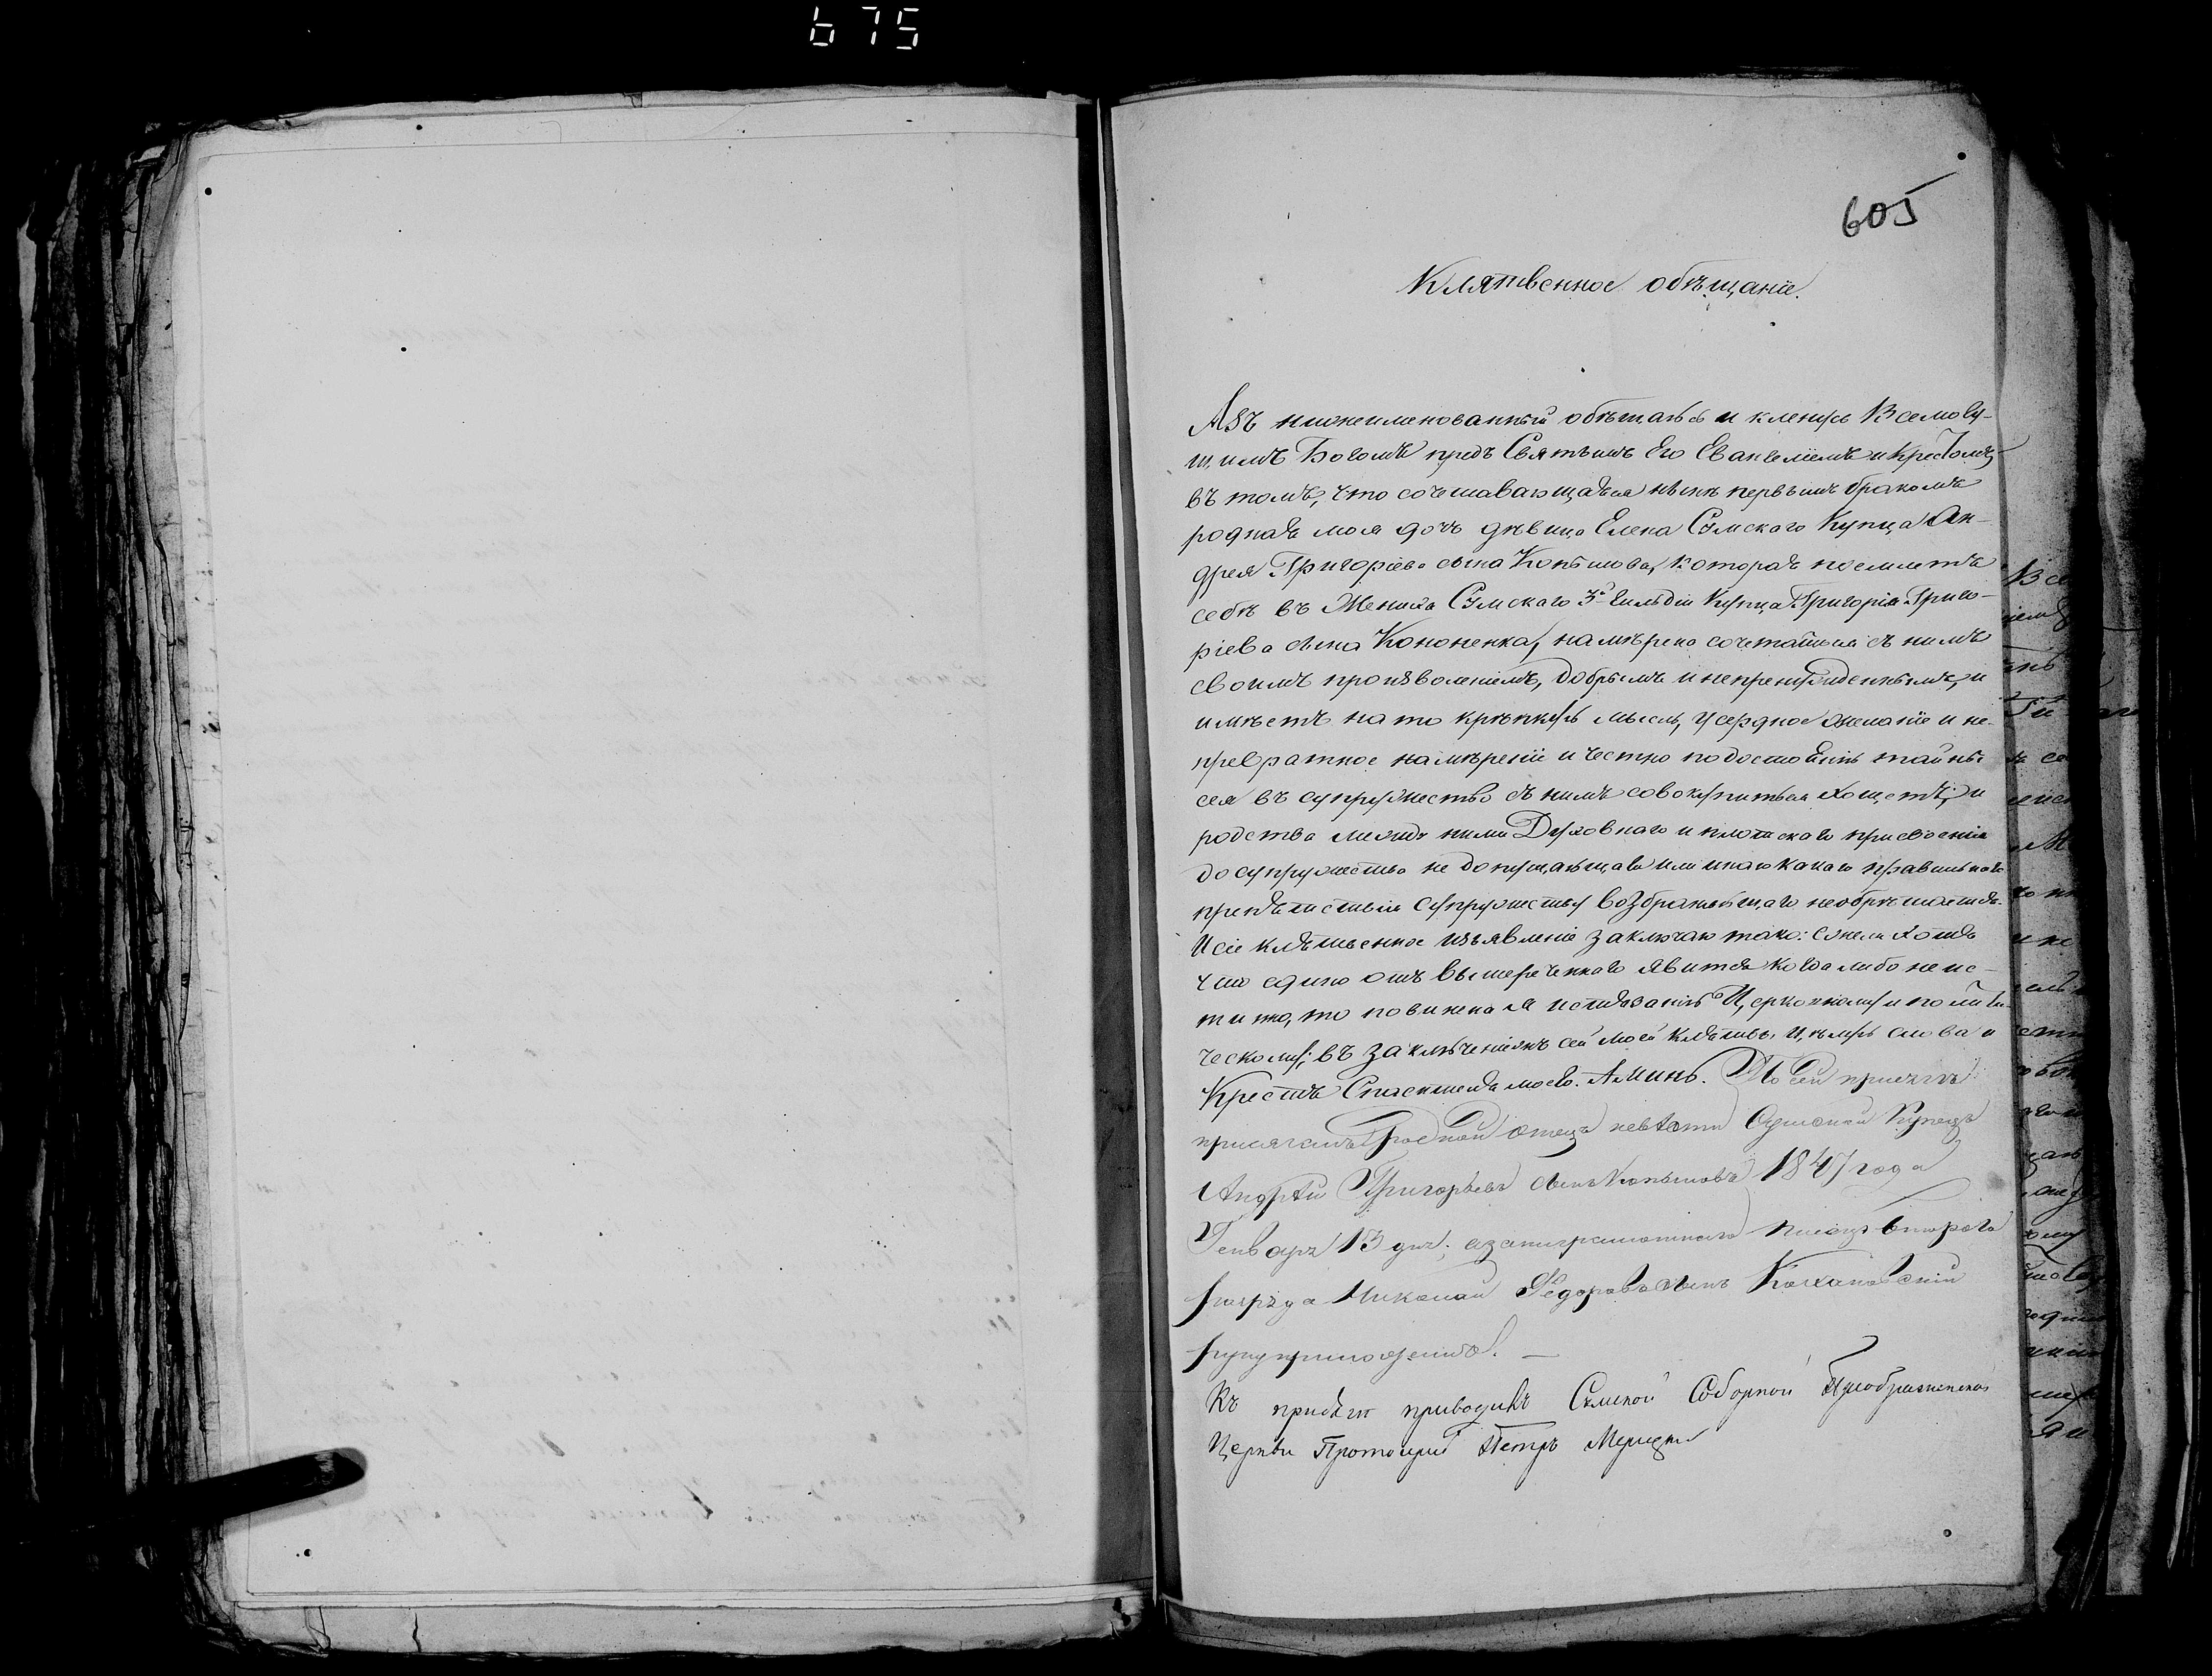 675
605
Клятвенное обѣщаніе.
Азъ нижеименованный обѣщаюсь и кленусь Всемогу-
щимъ Богомъ предъ Святымъ Его Евангеліемъ и Крестомъ
въ томъ, что сочетавающаяся нынѣ первымъ бракомъ
родная моя дочь дѣвица Елена Сумскаго Купца Ан-
дрея Григоріева сына Копылова, которая поемлетъ
себѣ въ Жениха Сумскаго 3й Гильдіи Купца Григорія Григо-
ріева сына Кононенка, намѣрена сочетаться съ нимъ
своимъ произволеніемъ, добрымъ и непренужденнымъ, и
имѣетъ на то крѣпкую мысль, усердное желаніе и не-
превратное намѣреніе и честно по достоянію тайны
сея въ супружество съ нимъ совокупиться хощетъ; и
родства между ними Духовнаго и плотскаго присвоенія
до супружества не допущающаго или инаго какаго правильнаго
препятствія супружеству возбраняющаго необрѣтается.
И сіе клятвенное изъявленіе заключаю тако: ежели хотя
что едино отъ вышереченнаго явится когда либо не ис-
тинно, то повиненъ я истязанію Церковному и полити-
ческому; въ заключеніежъ сей моей клятвы, цѣлую слова и
Крестъ Спасителя моего. Аминь. По сей присягѣ
присягалъ родной отецъ невѣсты Сумской Купецъ
Андрѣй Григорьевъ сынъ Копыловъ 1847 года
Генваря 13 дня; а за неграмотнаго писецъ втораго
разряда Николай Федоровъ сынъ Кохановскій
руку приложилъ. —
Къ присягѣ приводилъ Сумской Соборной Преображенской
Церкви Протоіерей Петръ